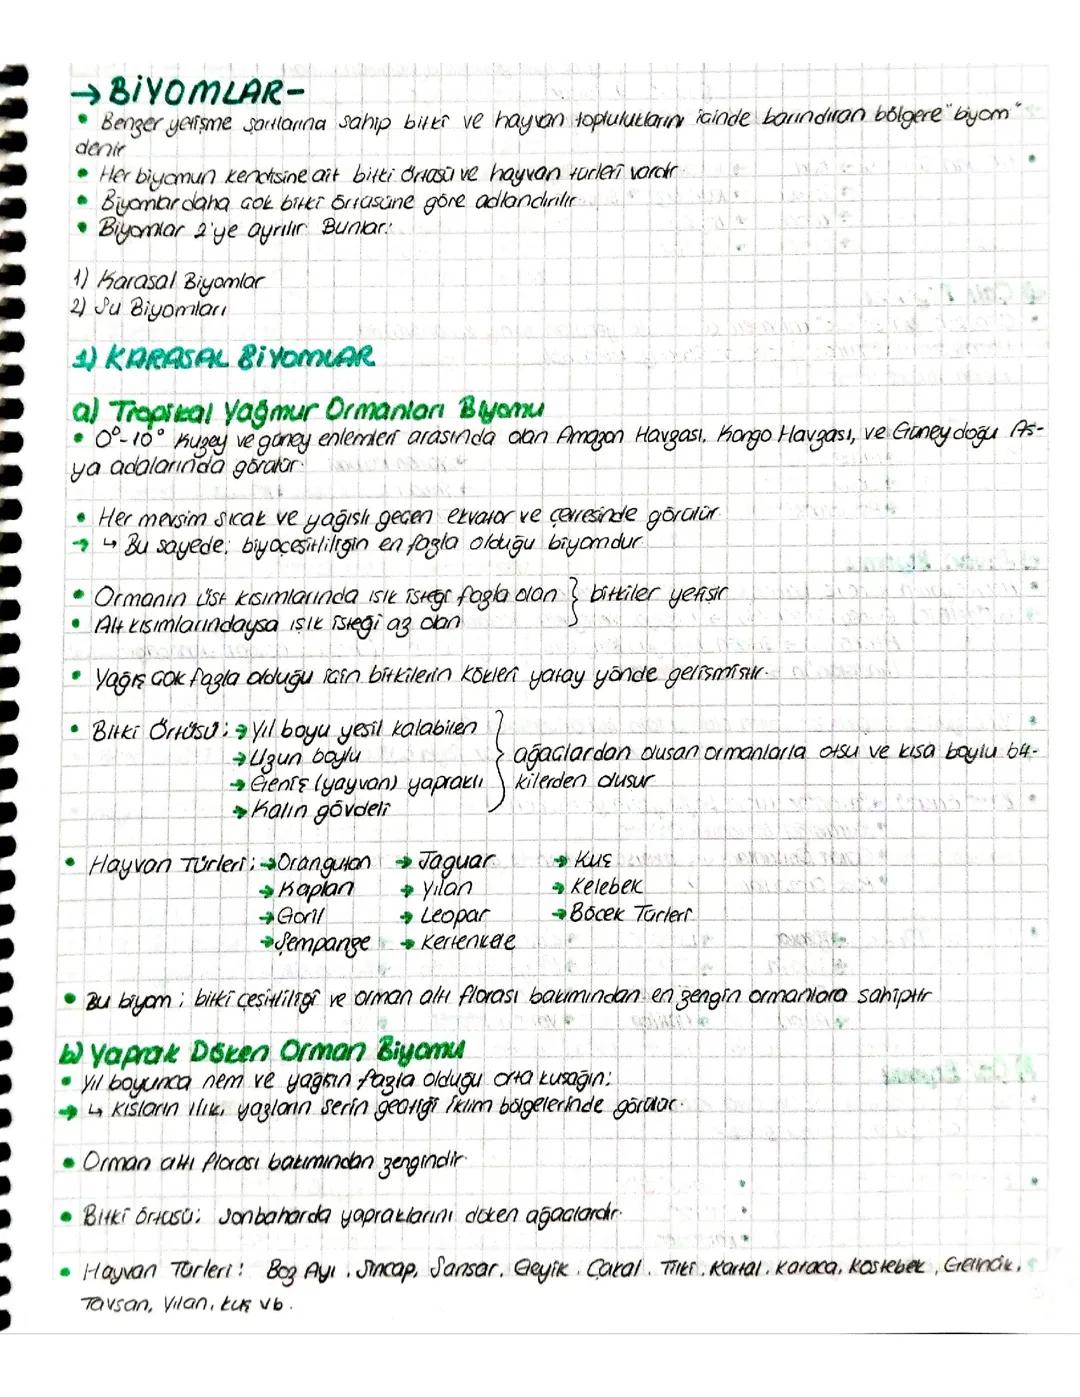 → BİYOMLAR-
• Benzer yetişme şartlarına sahip bitki ve hayvan topluluklarını içinde barındıran bölgere "biyom"
denir
• Her biyomun kendisine ait bitki örtüsü ve hayvan türleri vardır.
• Biyomlar daha çok bitki örtüsüne göre adlandırılır
• Biyomlar 2'ye ayrılır. Bunlar:
1) Karasal Biyomlar
2) Su Biyomları
1) KARASAL BİYOMLAR
a) Tropikal Yağmur Ormanları Biyomu
• 0°-10° Kuzey ve güney enlemleri arasında olan Amazon Havzası, Kongo Havzası, ve Güneydoğu As-
ya adalarında görülür.
• Her mevsim sıcak ve yağışlı geçen ekvator ve çevresinde görülür.
→ ↳ Bu sayede; biyoçeşitliliğin en fazla olduğu biyomdur
• Ormanın üst kısımlarında ışık isteği fazla olan } bitkiler yetişir
• Alt kısımlarındaysa ışık isteği az olan
• Yağış çok fazla olduğu için bitkilerin kökleri yatay yönde gelişmiştir.
• Bitki Örtüsü: → Yıl boyu yeşil kalabilen
→ Uzun boylu } ağaçlardan oluşan ormanlarla otsu ve kısa boylu bit-
→ Geniş (yayvan) yapraklı kilerden oluşur
→ Kalın gövdeli
• Hayvan Türleri: → Orangutan → Jaguar → Kuş
→ Kaplan → Yılan → Kelebek
→ Goril → Leopar → Böcek Türleri
→ Şempanze → Kertenkele
• Bu biyom; bitki çeşitliliği ve orman altı florası bakımından en zengin ormanlara sahiptir
b) Yaprak Döken Orman Biyomu
• Yıl boyunca nem ve yağışın fazla olduğu orta kuşağın;
→ ↳ Kışların ılık, yazların serin geçtiği iklim bölgelerinde görülür.
• Orman altı florası bakımından zengindir.
• Bitki örtüsü: Sonbaharda yapraklarını döken ağaçlardır.
• Hayvan Türleri: Boz Ayı, Sincap, Sansar, Geyik, Çakal, Tilki, Kartal, Karaca, Köstebek, Gelincik,
Tavşan, Yılan, kuş vb.